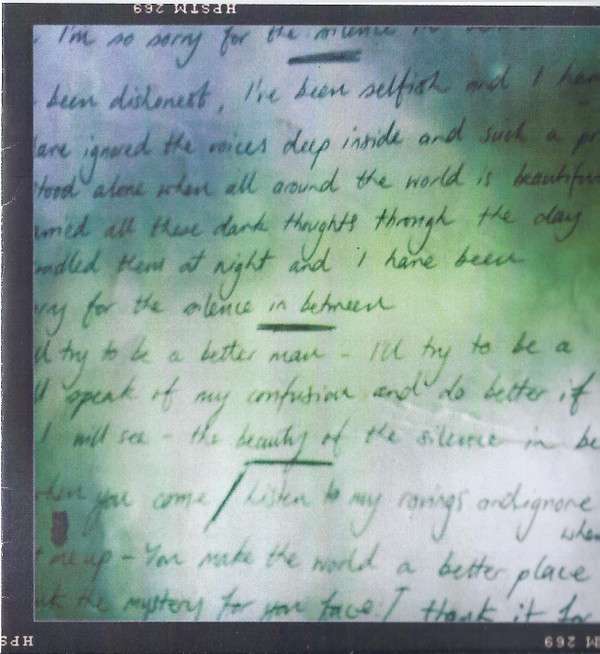 HPSTM 269
I'm so sorry for the silence in
been dishonest, I've been selfish and I
ignored the voices deep inside and such a
alone when all around the world is
all these dark thoughts through the day
them at night and I have been
for the silence in between
try to be a better man - I'll try to be a
speak of my confusion and do better if
I will see - the beauty of the silence in
you come / Listen to my ravings and ignore
me up - You make the world a better place
the mystery for your face / I thank it for
HPS
269